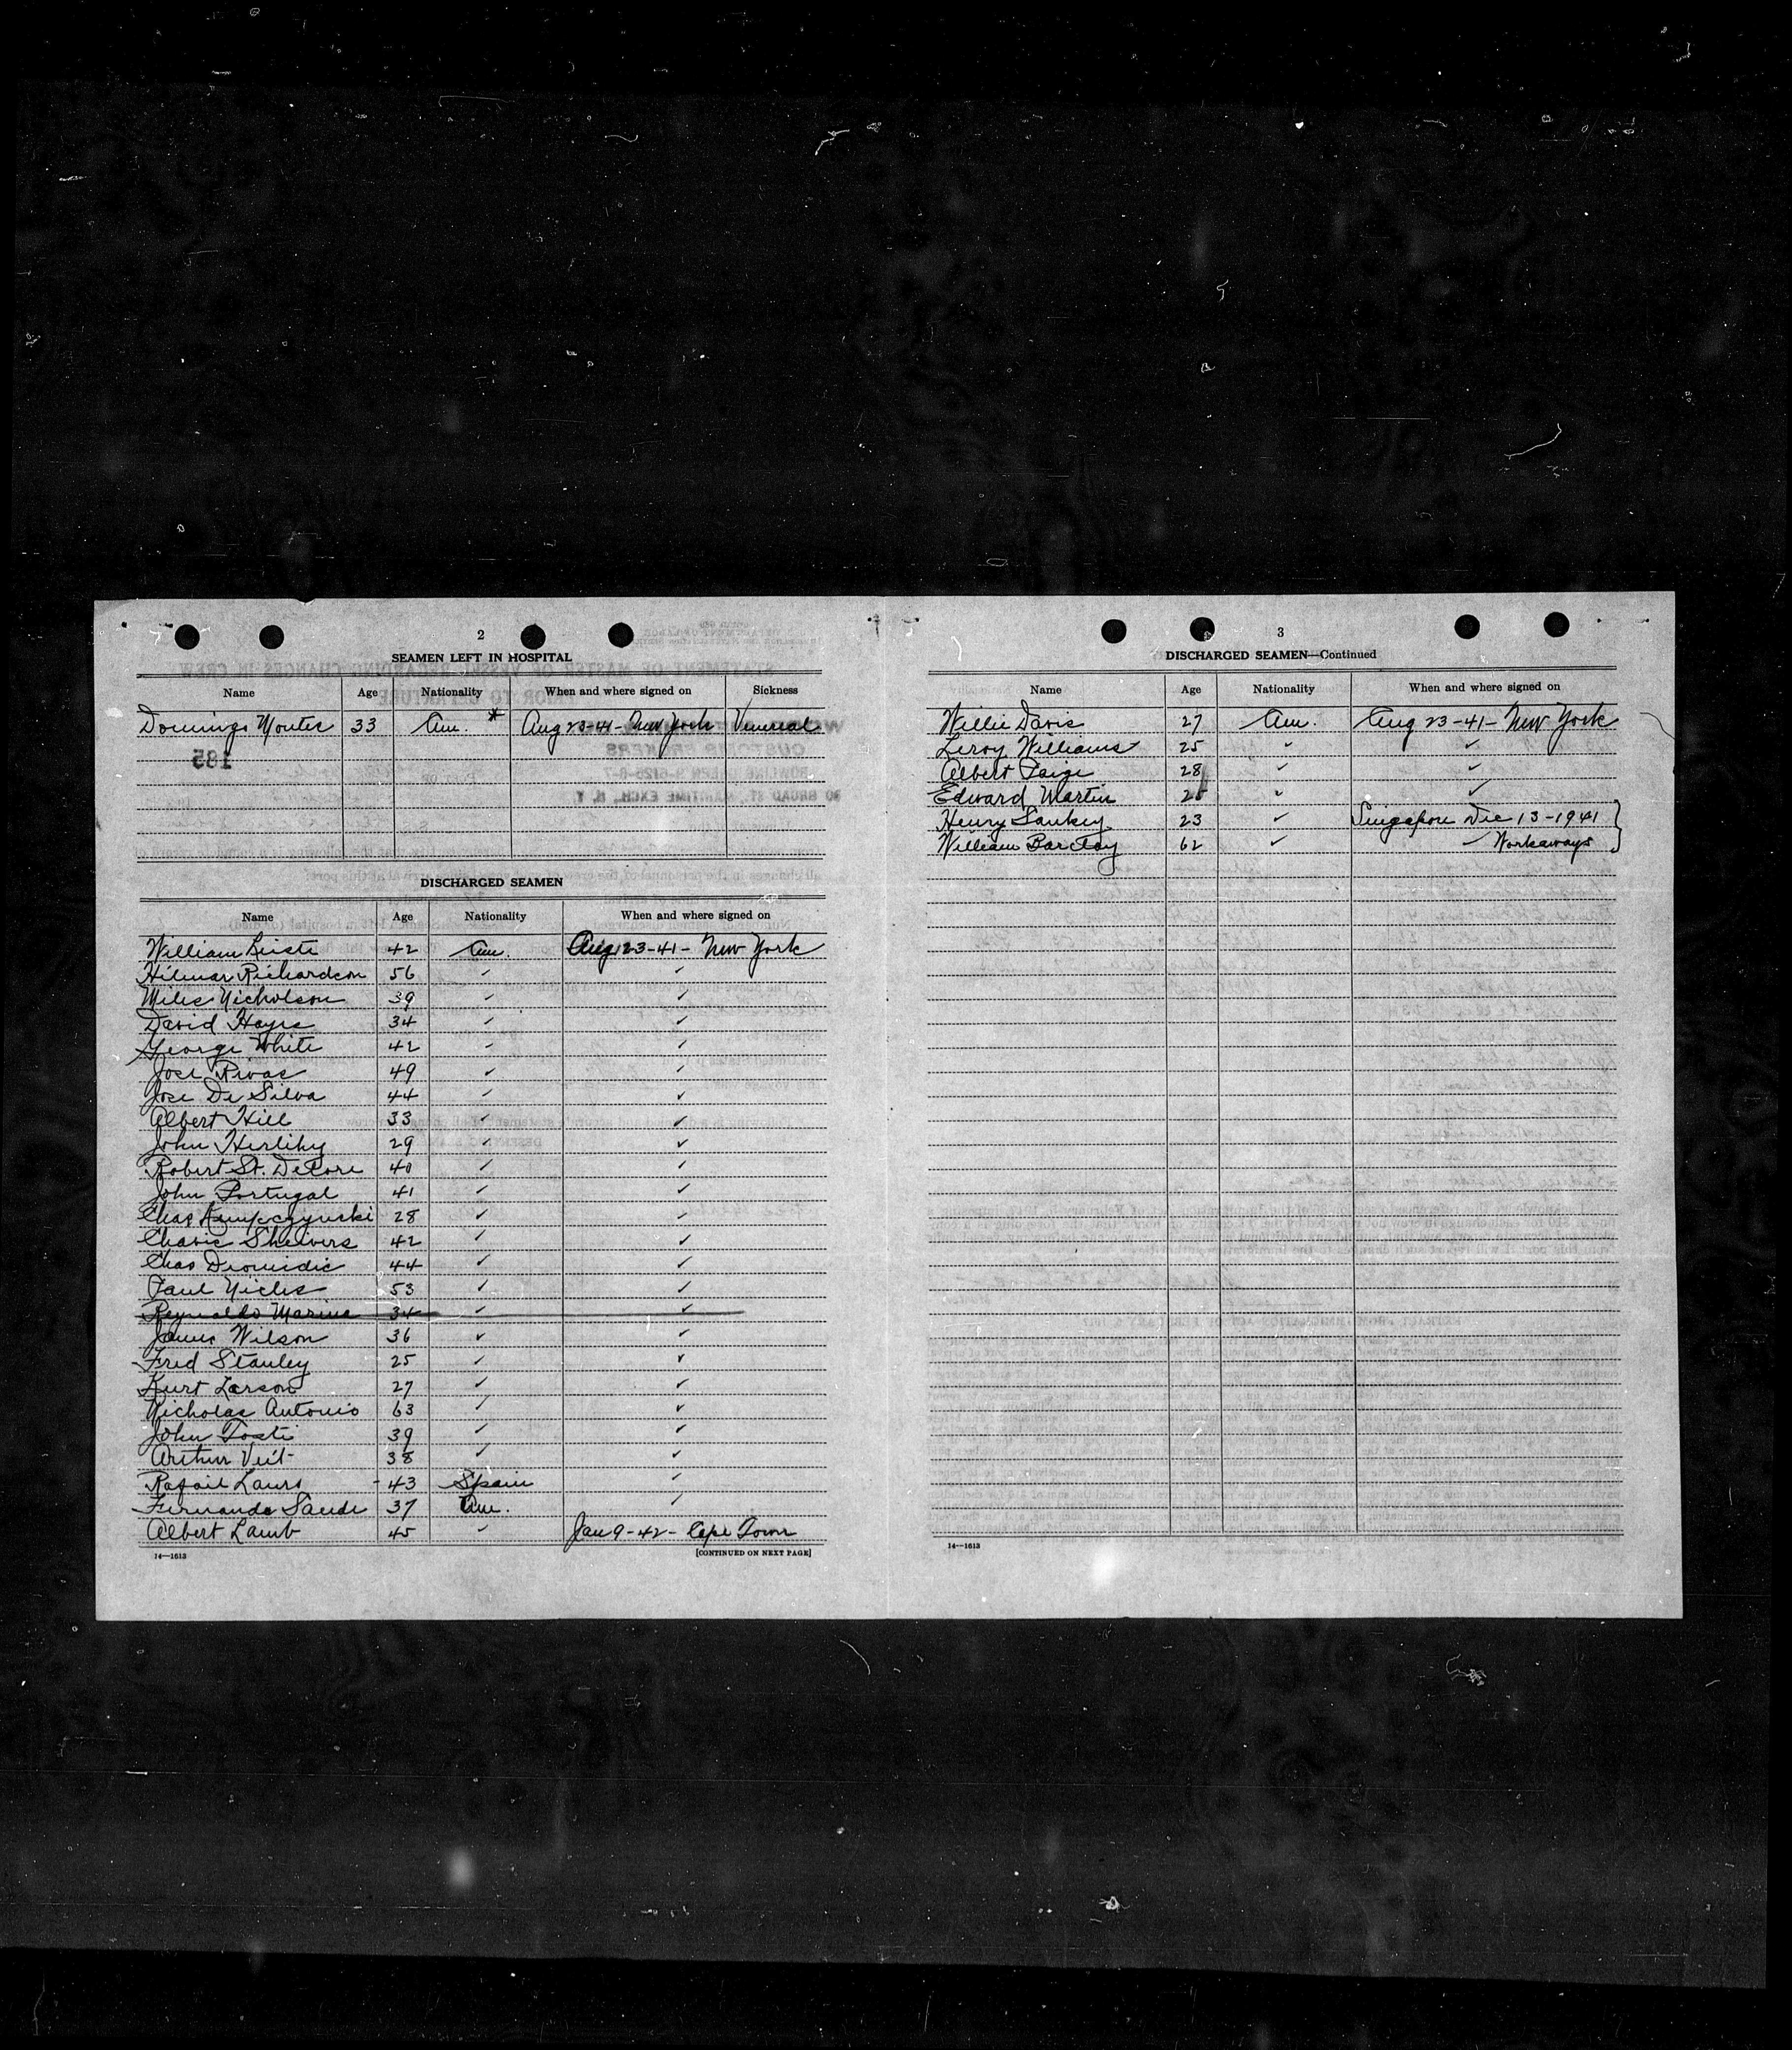 2
SEAMEN LEFT IN HOSPITAL
Name Age Nationality When and where signed on Sickness
Domingo Montes 33 Am. * Aug 23-41- New York Venereal
185
DISCHARGED SEAMEN
Name Age Nationality When and where signed on
William 42 Am. Aug 23-41- New York
Hilmar Richardson 56 ✓ ✓
Miles Nicholson 39 ✓ ✓
David Hayes 34 ✓ ✓
George White 42 ✓ ✓
Jose Rivas 49 ✓ ✓
Jose De Silva 44 ✓ ✓
Albert Hill 33 ✓ ✓
John Herlihy 29 ✓ ✓
Robert St. 40 ✓ ✓
John Portugal 41 ✓ ✓
Chas Kempczynski 28 ✓ ✓
Sheivers 42 ✓ ✓
Chas 44 ✓ ✓
Paul 53 ✓ ✓
Reynaldo Marina 34 ✓ ✓
James Wilson 36 ✓ ✓
Fred Stanley 25 ✓ ✓
Kurt Larson 27 ✓ ✓
Nicholas Antonio 63 ✓ ✓
John Tosti 39 ✓ ✓
Arthur Veit 38 ✓ ✓
43 Spain ✓
37 Am. ✓
Albert Lamb 45 ✓ Jan 9-42- Cape Town
14—1613 [CONTINUED ON NEXT PAGE]
3
DISCHARGED SEAMEN—Continued
Name Age Nationality When and where signed on
Willie Davis 27 Am. Aug 23-41- New York
Leroy Williams 25 ✓ ✓
Albert Paige 28 ✓ ✓
Edward Martin ✓ ✓
Henry Sankey 23 ✓ Singapore Dec 13-1941
William Barclay 62 ✓ ✓ Workaways
14—1613